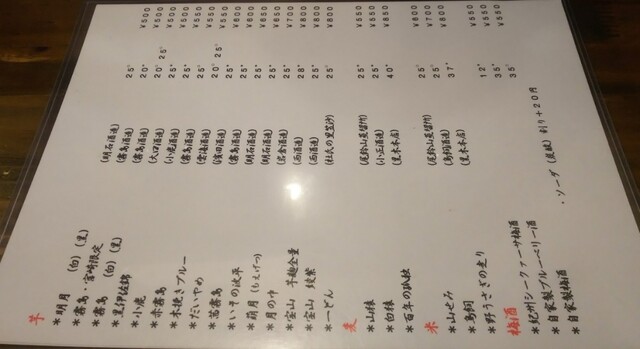 芋
*明月 (白)(黒) (明石酒造) 25° ¥500
*霧島・宮崎限定 (霧島酒造) 20° ¥500
*霧島 (白)(黒) (霧島酒造) 20° 25° ¥500
*黒伊佐錦 (大口酒造) 25° ¥500
*小鹿 (小鹿酒造) 25° ¥500
*赤霧島 (霧島酒造) 25° ¥550
*木挽きブルー (雲海酒造) 20° 25° ¥550
*だいやめ (濱田酒造) 25° ¥550
*茜霧島 (霧島酒造) 25° ¥600
*いもの波平 25° ¥600
*萌月(もえづき) (明石酒造) 25° ¥650
*月の中 25° ¥650
*宝山 芋麹全量 (西酒造) 28° ¥700
*宝山 綾紫 (西酒造) 25° ¥800
*一どん (杜氏の里笠沙) 25° ¥800
麦
*山猿 (尾鈴山蒸留所) 25° ¥550
*白猿 (小正酒造) 25° ¥550
*百年の孤独 (黒木本店) 40° ¥850
米
*山せみ (尾鈴山蒸留所) 25° ¥600
*鳥飼 (鳥飼酒造) 25° ¥700
*野うさぎの走り (黒木本店) 37° ¥800
梅酒
*紀州シークァーサ梅酒 12° ¥550
*自家製ブルーベリー酒 35° ¥550
*自家製梅酒 35° ¥550
・ソーダ(炭酸)割り+20円